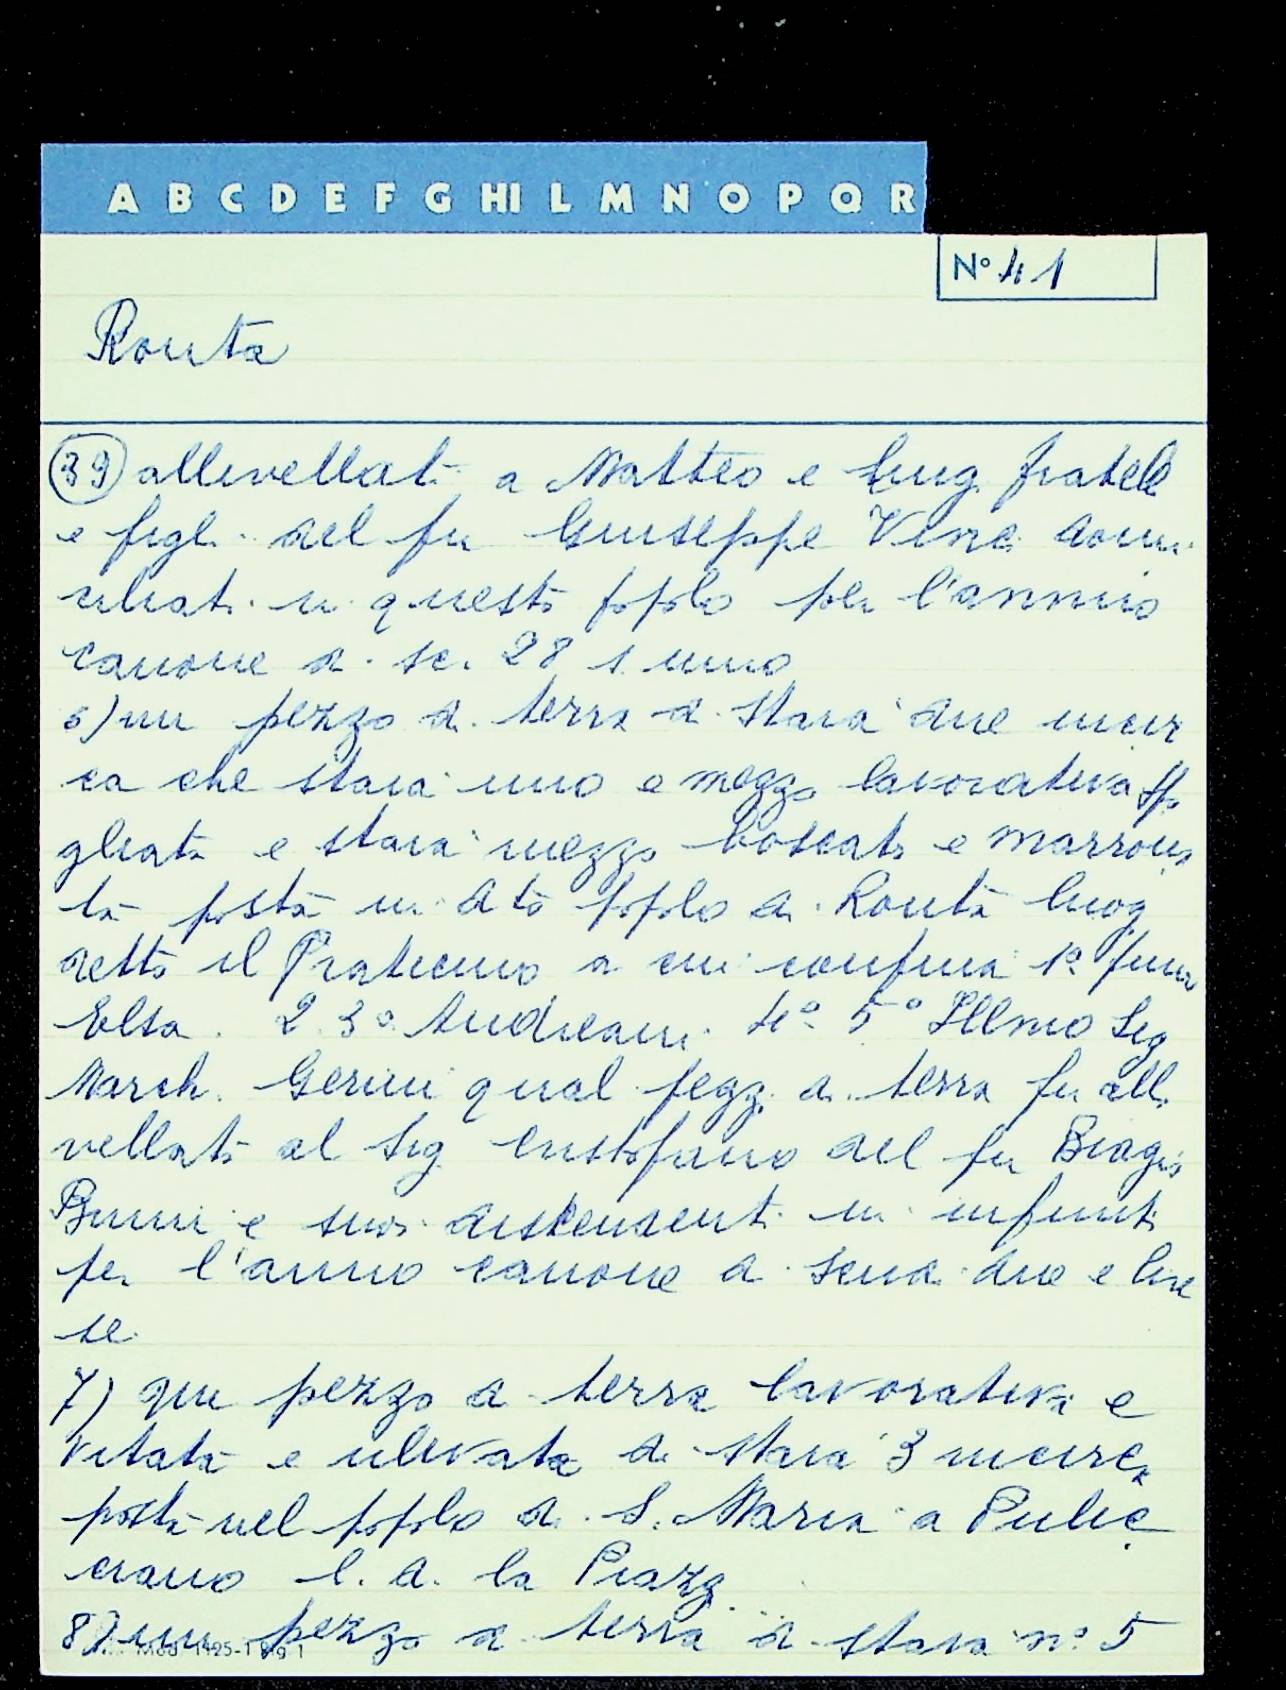 A B C D E F G HI L M N O P Q R
N° 41
Ronta
39 allivellati a Matteo e Luig. fratelli
e figli del fu Giuseppe domi
ciliati in questo popolo per l'annuo
canone di sc. 28 1 uno
6) un pezzo di terra di staia due incir
ca che staia uno e mezzo lavorativa sfo
gliata e staia mezzo boscato e marrona
ta posta in dto popolo di Ronta luog
detto il a cui confina 1° fiume
Elsa. 2 3° Andreani 4° 5° Illmo Sig
March. Gerini qual pezz. di terra fu alli
vellato al Sig Cristofano del fu Biagio
e suoi discendenti in infinito
per l'annuo canone di scudi due e lire
sei
7) un pezzo di terra lavorativa e
vitata e ulivata di staia 3 incirca
posta nel popolo di S. Maria a Pulic
ciano l. d. la Piazz
8) un pezzo di terra di staia n° 5
Mod 1425-1